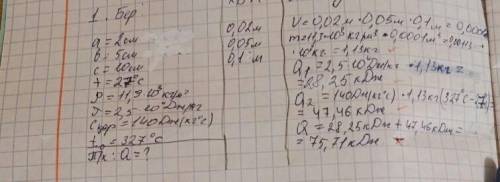 1. Бер
a = 2см
b = 5см
c = 10см
t = 27°C
0,02м
0,05м
0,1 м
ρ = 11,3·10³ кг/м³
λ = 2,5·10⁴ Дж/кг
= 140 Дж/(кг°C)
t = 327°C
Т/к: Q = ?
V = 0,02м · 0,05м · 0,1м = 0,0001м
m = 11,3·10³ кг/м³ · 0,0001м³ =
кг = 1,13кг
Q₁ = 2,5·10⁴Дж/кг · 1,13кг =
= 28,25кДж
Q₂ = 140Дж/(кг°C) · 1,13кг(327°C - 27) =
= 47,46кДж
Q = 28,25кДж + 47,46кДж =
= 75,71кДж